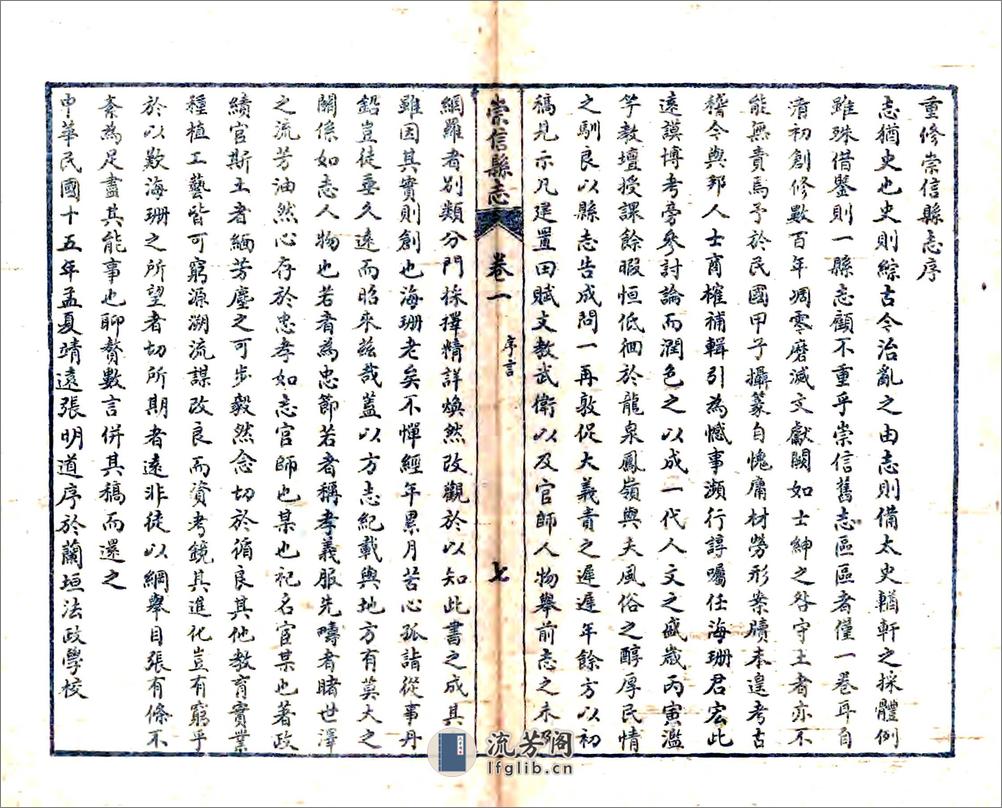 重修崇信縣志序
志猶史也史則綜古今治亂之由志則備太史輶軒之採體例
雖殊借鑒則一縣志顧不重乎崇信舊志區區者僅一卷耳自
清初創修數百年凋零磨滅文獻闕如士紳之咎守土者亦不
能無責焉予於民國甲子攝篆自愧庸材勞形案牘未遑考古
稽今與邦人士商榷補輯引為憾事瀕行諄囑任海珊君宏此
遠謨博考旁參討論而潤色之以成一代人文之盛歲丙寅濫
竽教壇授課餘暇恒低徊於龍泉鳳嶺與夫風俗之醇厚民情
之馴良以縣志告成問一再敦促大義責之遲遲年餘方以初
稿見示凡建置田賦文教武衛以及官師人物舉前志之未
崇信縣志
卷一
序言
七
網羅者別類分門採擇精詳煥然改觀於以知此書之成其
雖因其實則創也海珊老矣不憚經年累月苦心孤詣從事丹
鉛豈徒垂久遠而昭來玆哉蓋以方志紀載與地方有莫大之
關係如志人物也若者為忠節若者稱孝義服先疇者睹世澤
之流芳油然心存於忠孝如志官師也某也祀名宦某也著政
績官斯土者緬芳塵之可步毅然念切於循良其他教育實業
種植工藝皆可窮源溯流謀改良而資考鏡其進化豈有窮乎
於以歎海珊之所望者切所期者遠非徒以綱舉目張有條不
紊為足盡其能事也聊贅數言併其稿而還之
中華民國十五年孟夏靖遠張明道序於蘭垣法政學校
流芳閣
lfglib.cn